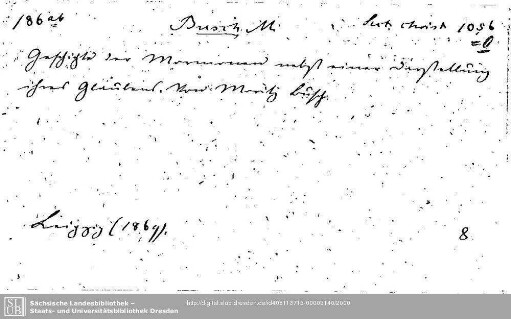 186 ab Busch, M. Sect. christ. 1056
=0
Geschichte der Mormonen nebst einer Darstellung
ihres Glaubens. Von Moritz Busch.
Leipzig (1869). 8
Sächsische Landesbibliothek –
Staats- und Universitätsbibliothek Dresden